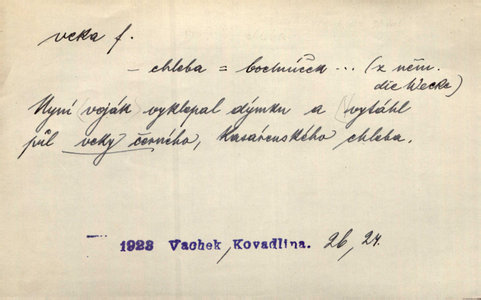 veka f.
– chleba = bochníček ... (z něm.
die Wecke)
Nyní voják vyklepal dýmku a vytáhl
půl veky černého, kasárenského chleba.
1923 Vachek, Kovadlina. 26, 24.